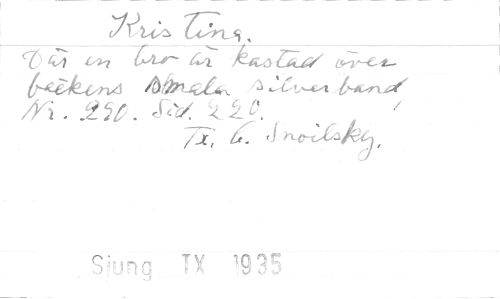 Kristina.
Där en bro är kastad över
bäckens smala silverband,
Nr. 290. Sid. 220.
Tx. C. Snoilsky.
Sjung TX 1935